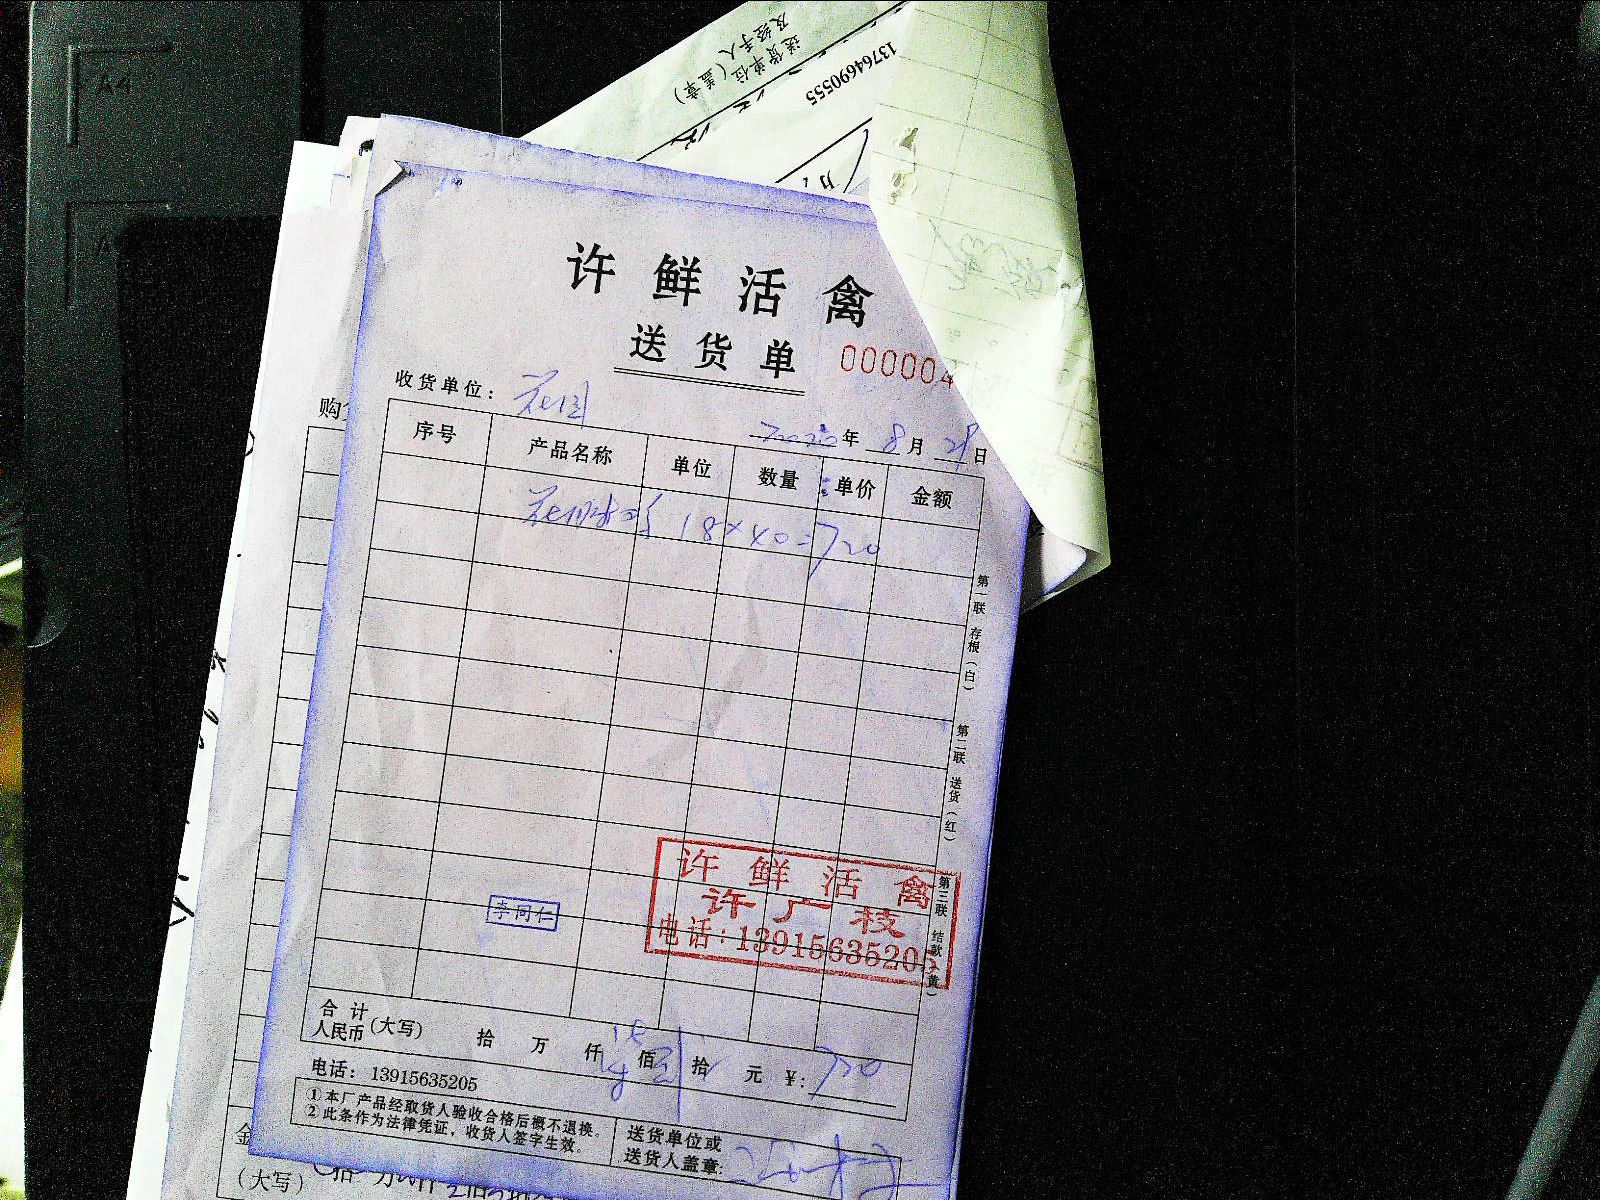 送货单位(盖章)
及经手人
13764690555
A4
许鲜活禽
送货单
000004
收货单位: 花园
2020年 8月 29日
序号 产品名称 单位 数量 单价 金额
18×40=720
第一联 存根(白)
第二联 送货(红)
第三联 结款(黄)
许鲜活禽
许广枝
电话:13915635205
李同仁
合计
人民币(大写) 拾 万 仟 佰 拾 元 ¥: 720
电话: 13915635205
①本厂产品经取货人验收合格后概不退换。
②此条作为法律凭证,收货人签字生效。
送货单位或
送货人盖章:
购
金
(大写)